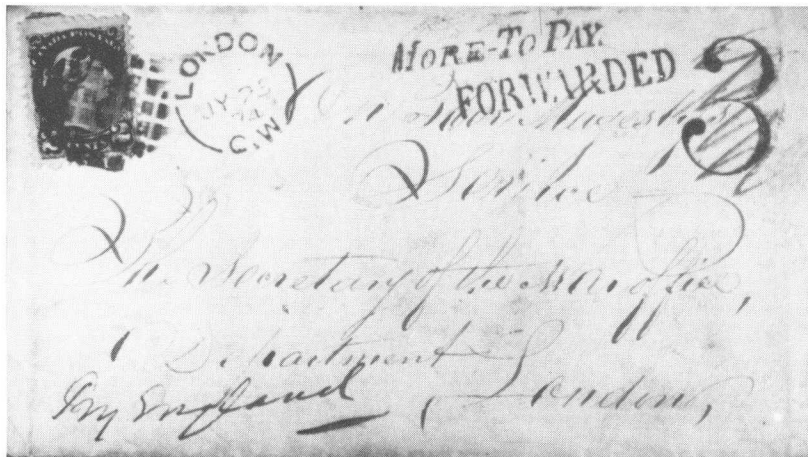 LONDON
JY 25
C.W
MORE-TO PAY.
FORWARDED
3
On Her Majesty's
Service
The Secretary of the War Office,
Department
London,
England